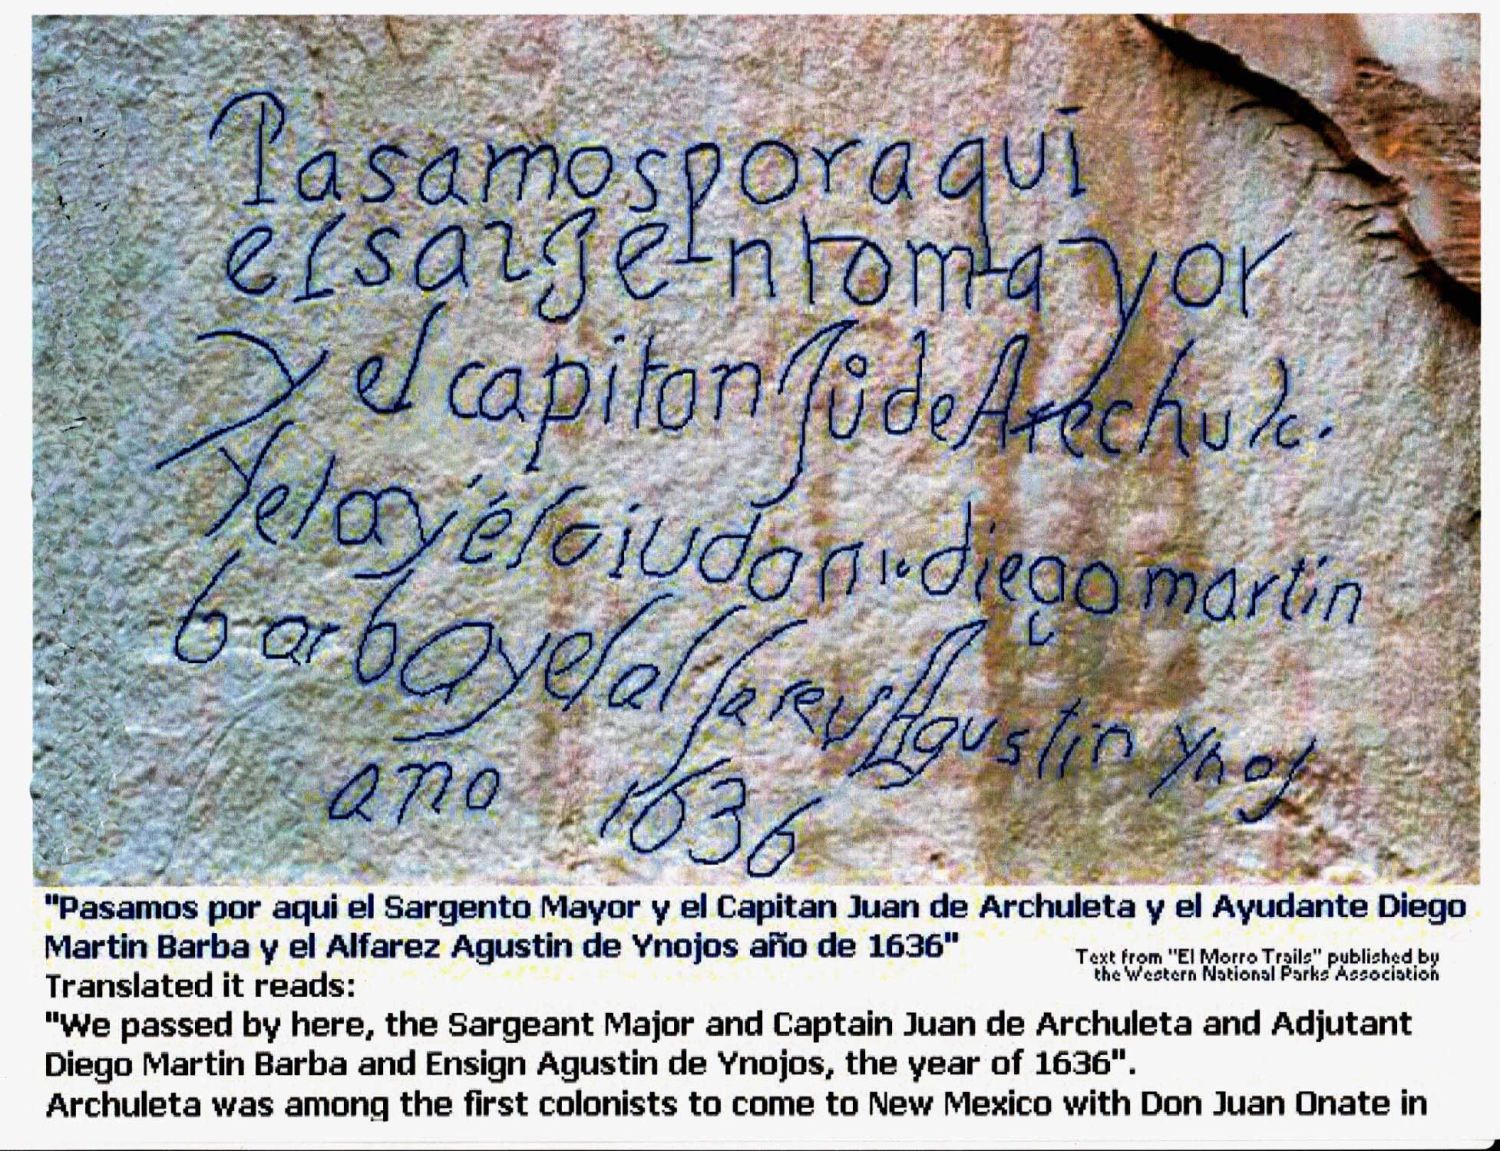 Pasamos por aqui
el sargento mayor
y el capitan Ju de Arechul
y el ayudan diego martin
barba y el alferes Agustin Ynoj
año 1636
"Pasamos por aqui el Sargento Mayor y el Capitan Juan de Archuleta y el Ayudante Diego
Martin Barba y el Alfarez Agustin de Ynojos año de 1636"
Text from "El Morro Trails" published by
the Western National Parks Association
Translated it reads:
"We passed by here, the Sargeant Major and Captain Juan de Archuleta and Adjutant
Diego Martin Barba and Ensign Agustin de Ynojos, the year of 1636".
Archuleta was among the first colonists to come to New Mexico with Don Juan Onate in